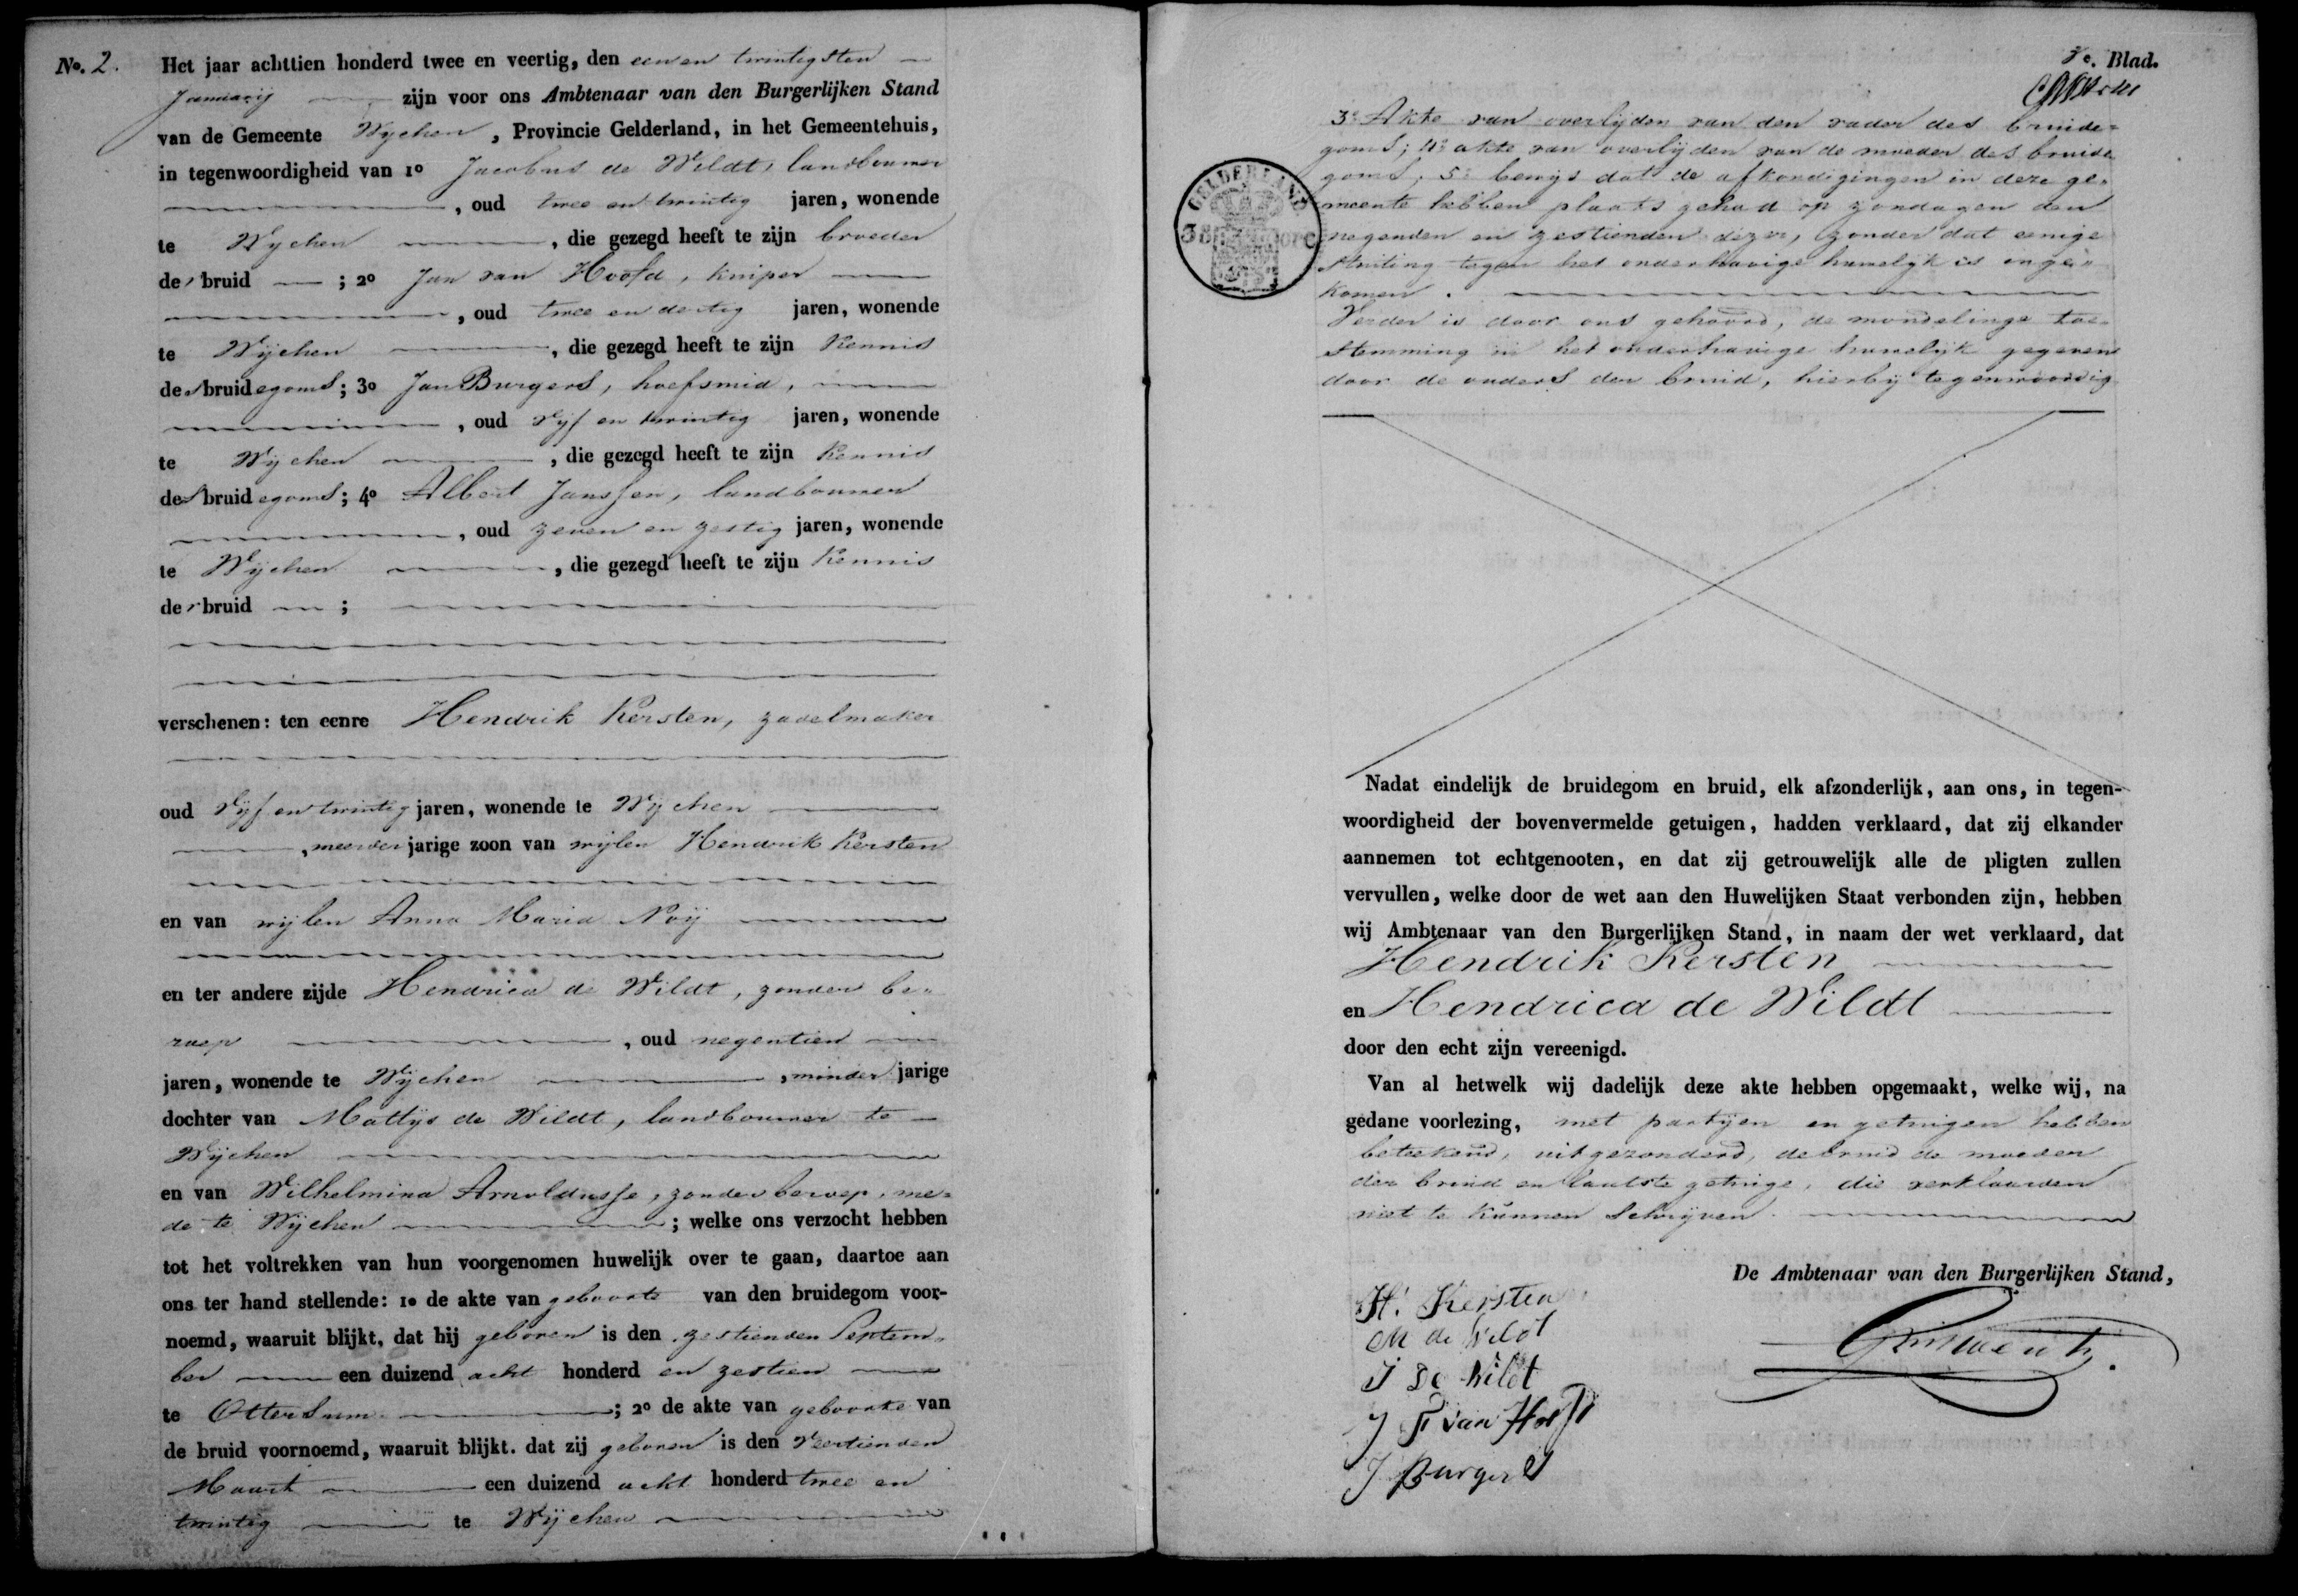 No. 2.
Het jaar achttien honderd twee en veertig, den een en twintigsten
Januarij zijn voor ons Ambtenaar van den Burgerlijken Stand
van de Gemeente Wychen, Provincie Gelderland, in het Gemeentehuis,
in tegenwoordigheid van 1o Jacobus de Wildt, landbouwer
, oud twee en twintig jaren, wonende
te Wychen, die gezegd heeft te zijn broeder
der bruid ; 2o Jan van Hoofd, kuiper
, oud twee en dertig jaren, wonende
te Wijchen, die gezegd heeft te zijn kennis
des bruidegoms; 3o Jan Burgers, hoefsmid,
, oud vijf en twintig jaren, wonende
te Wijchen, die gezegd heeft te zijn kennis
des bruidegoms; 4o Albert Janssen, landbouwer
, oud zeven en zestig jaren, wonende
te Wijchen, die gezegd heeft te zijn kennis
der bruid ;
verschenen: ten eenre Hendrik Kersten, zadelmaker
oud vijf en twintig jaren, wonende te Wijchen
, meerderjarige zoon van wijlen Hendrik Kersten
en van wijlen Anna Maria Noij
en ter andere zijde Hendrica de Wildt, zonder be=
roep, oud negentien
jaren, wonende te Wijchen, minderjarige
dochter van Mattijs de Wildt, landbouwer te
Wijchen
en van Wilhelmina Arnoldusse, zonder beroep, me=
de te Wijchen; welke ons verzocht hebben
tot het voltrekken van hun voorgenomen huwelijk over te gaan, daartoe aan
ons ter hand stellende: 1o de akte van geboorte van den bruidegom voor-
noemd, waaruit blijkt, dat hij geboren is den zestienden Septem=
ber een duizend acht honderd en zestien
te Ottersum; 2o de akte van geboorte van
de bruid voornoemd, waaruit blijkt. dat zij geboren is den veertienden
Maart een duizend acht honderd twee en
twintig te Wijchen
3e. Blad.
3o Akte van overlijden van den vader des bruide=
goms; 4o akte van overlijden van de moeder des bruide
goms; 5o bewijs dat de afkondigingen in deze ge=
meente hebben plaats gehad op zondagen den
negenden en zestienden dezer, zonder dat eenige
stuiting tegen het onderhavige huwelijk is inge=
komen.
GELDERLAND
Verder is door ons gehoord, de mondelinge toe=
stemming in het onderhavige huwelijk gegeven
door de ouders der bruid, hierbij tegenwoordig
Nadat eindelijk de bruidegom en bruid, elk afzonderlijk, aan ons, in tegen-
woordigheid der bovenvermelde getuigen, hadden verklaard, dat zij elkander
aannemen tot echtgenooten, en dat zij getrouwelijk alle de pligten zullen
vervullen, welke door de wet aan den Huwelijken Staat verbonden zijn, hebben
wij Ambtenaar van den Burgerlijken Stand, in naam der wet verklaard, dat
Hendrik Kersten
en Hendrica de Wildt
door den echt zijn vereenigd.
Van al hetwelk wij dadelijk deze akte hebben opgemaakt, welke wij, na
gedane voorlezing, met partijen en getuigen hebben
beteekend, uitgezonderd, de bruid de moeder
der bruid en laatste getuige, die verklaarden
niet te kunnen schrijven.
De Ambtenaar van den Burgerlijken Stand,
H. Kersten
M de Wildt
J De Wildt
J van Hoofd
J Burgers